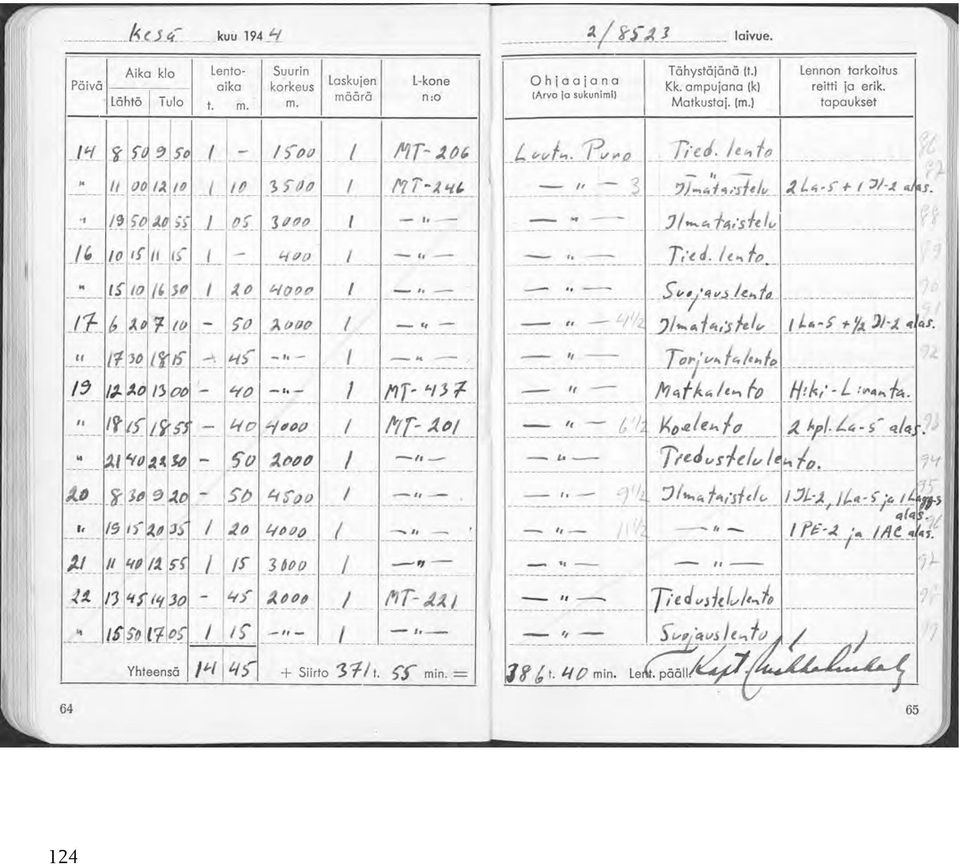 kesä kuu 194 4 2/8523 laivue.
Päivä Aika klo Lähtö Tulo Lento-aika t. m. Suurin korkeus m. Laskujen määrä L-kone n:o Ohjaajana (Arvo ja sukunimi) Tähystäjänä (t.) Kk. ampujana (k) Matkustaj. (m.) Lennon tarkoitus reitti ja erik. tapaukset
14 8 50 9 50 1 - 1500 1 MT-206 Luutn. Puro Tied. lento
" 11 00 12 10 1 10 3500 1 MT-246 — " — 3 Ilmataistelu 2 La-5 + 1 Il-2 alas. 87
" 19 50 20 55 1 05 3000 1 — " — — " — Ilmataistelu 88
16 10 15 11 15 1 - 400 1 — " — — " — Tied. lento.
" 15 10 16 30 1 20 4000 1 — " — — " — Suojauslento 90
17 6 20 7 10 - 50 2000 1 — " — — " — 4 1/2 Ilmataistelu 1 La-5 + 1/2 Il-2 alas. 91
" 17 30 18 15 - 45 - " - 1 — " — — " — Torjuntalento 92
19 12 20 13 00 - 40 - " - 1 MT-437 — " — Matkalento H:ki - L:ranta.
" 18 15 18 55 - 40 4000 1 MT-201 — " — 6 1/2 Koelento 2 kpl. La-5 alas.
" 21 40 22 30 - 50 2000 1 — " — — " — Tiedustelulento. 94
20 8 30 9 20 - 50 4500 1 — " — — " — 9 1/2 Ilmataistelu 1 Il-2, 1 La-5 ja 1 Lagg-3 alas. 95
" 19 15 20 35 1 20 4000 1 — " — — " — 11 1/2 — " — 1 PE-2 ja 1 AC alas. 96
21 11 40 12 55 1 15 3000 1 — " — — " — — " — 97
22 13 45 14 30 - 45 2000 1 MT-221 — " — Tiedustelulento
" 15 50 17 05 1 15 - " - 1 — " — — " — Suojauslento
Yhteensä 14 45 + Siirto 371 t. 55 min. = 386 t. 40 min. Lent. pääll. Kapt.
64 65
124